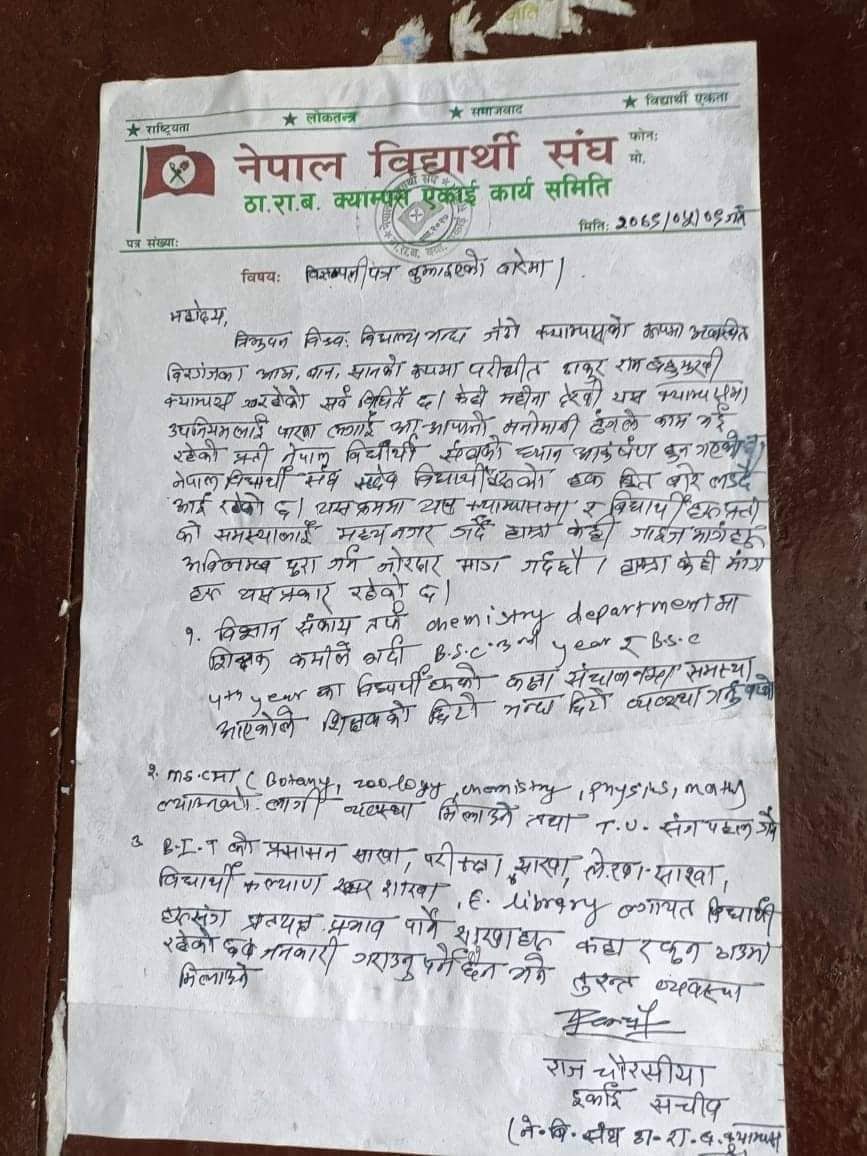 ★ राष्ट्रियता ★ लोकतन्त्र ★ समाजवाद ★ विद्यार्थी एकता
नेपाल विद्यार्थी संघ
फोन:
मो.
ठा.रा.ब. क्याम्पस एकाई कार्य समिति
पत्र संख्या:
मिति:
विषय: बुझाइएको बारेमा।
महोदय,
त्रिभुवन विश्व: विद्यालय भन्दा जेठो क्याम्पसको रूपमा अवस्थित
विरगंजका आन, बान, सानको रूपमा परीचीत ठाकुर राम
क्याम्पस रहेको सर्व विधितै छ। केही महीना देखी यस क्याम्पसमा
उपनियमलाई लगाई आ-आफ्नो मनोमानी ढंगले काम भई
रहेको प्रती नेपाल विद्यार्थी संघको ध्यान आकर्षण हुन गएको छ,
नेपाल विद्यार्थी संघ सदैव विद्यार्थीहरुको हक हित बारे लड्दै
आई रहेको छ। यसक्रममा यस क्याम्पासमा र विद्यार्थी हरु प्रती
को समस्यालाई मध्यनगर गर्दै हाम्रा केही जाइज मागहरु
अविलम्ब पुरा गर्न जोरदार माग गर्दछौ। हाम्रा केही माग
हरु यसप्रकार रहेको छ।
१. विज्ञान संकाय तर्फ chemistry department मा
शिक्षक कमीले गर्दा B.S.C. 3rd year र B.S.C
4th year का विद्यार्थी हरुको कक्षा संचालनमा समस्या
आएकोले शिक्षकको छिटो भन्दा छिटो व्यवस्था गर्नु
२. MS.C मा (Botany, zoology, chemistry, physics, maths
ल्याउनको लागी व्यवस्था मिलाउने तथा T.U. संग पहल गर्ने
3. B.I.T को प्रसासन साखा, परीक्षा साखा, लेखा-साखा,
विद्यार्थी कल्याण शाखा, E. library लगायत विद्यार्थी
हरुसंग प्रत्यक्ष प्रभाव पार्ने शाखाहरु कहा र कुन ठाउमा
रहेको छ जानकारी गराउनु पर्ने तुरन्त व्यवस्था
मिलाउने
राज चौरसीया
इकाई सचीव
(ने.बि. संघ ठा. रा. ब. क्याम्पस